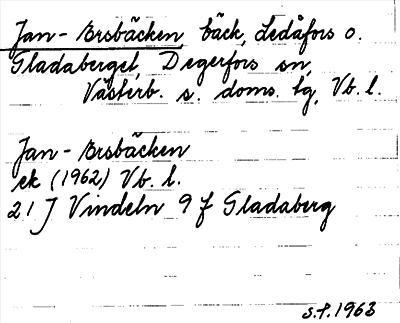 Jan-Ersbäcken, bäck, Ledåfors o.
Gladaberget, Degerfors sn,
Västerb. s. doms. tg, Vb. l.
Jan-Ersbäcken
ek (1962) Vb. l.
21 J Vindeln 9 f Gladaberg
s.f. 1963